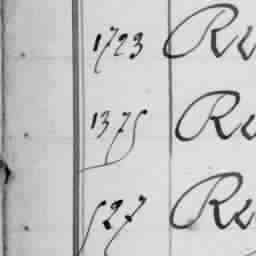 1723 Re
1375 Re
527 Re